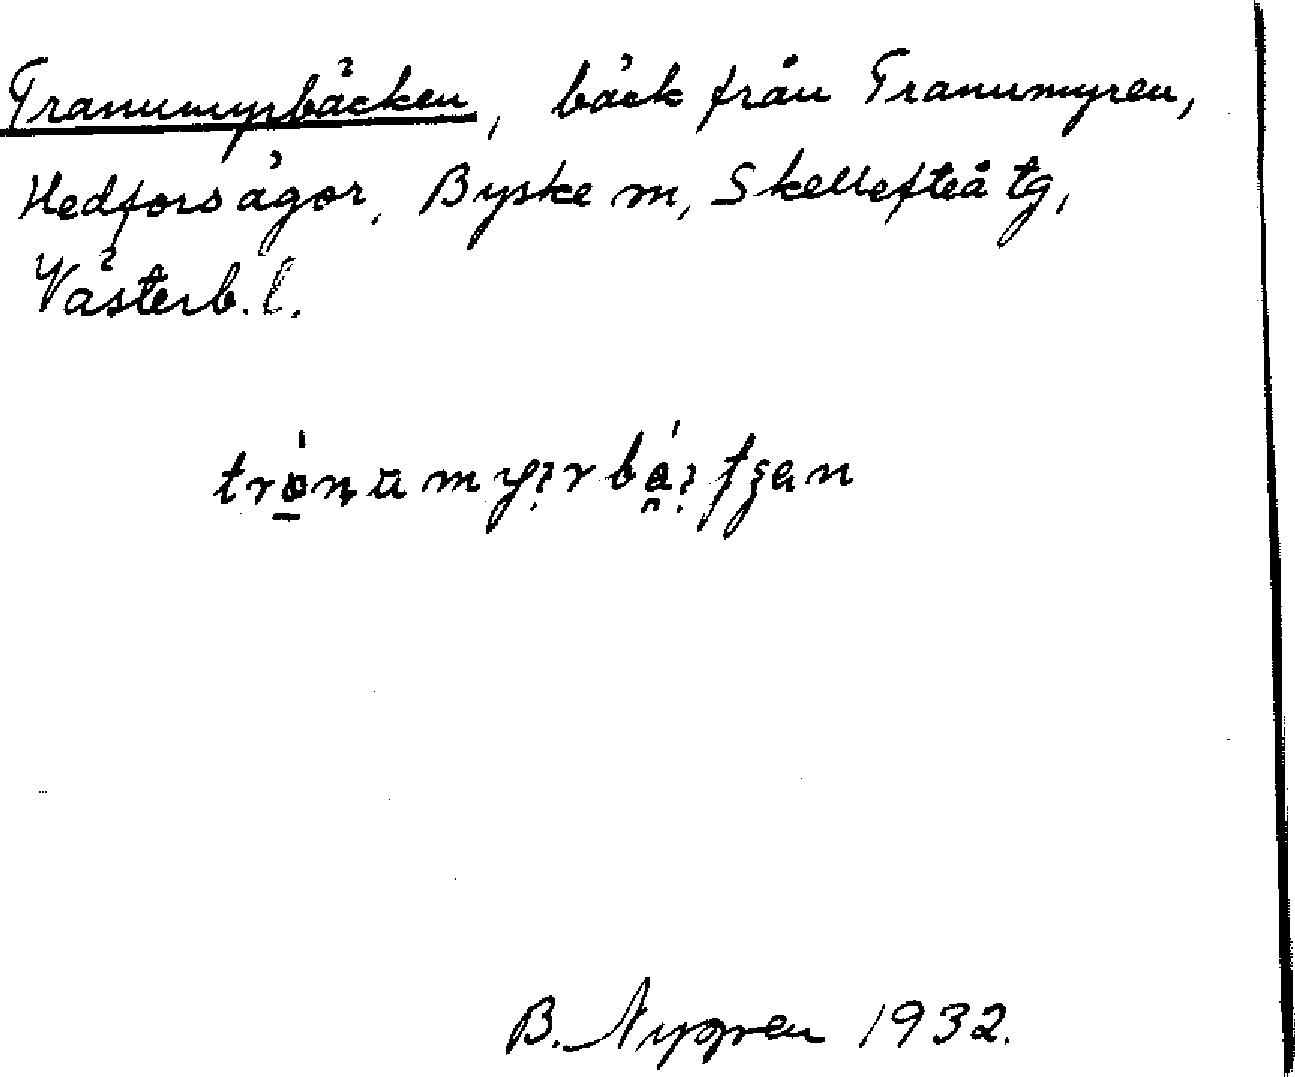 Tranumyrbäcken, bäck från Tranumyren,
Hedfors ägor, Byske sn, Skellefteå tg,
Västerb. l.
B. Nygren 1932.